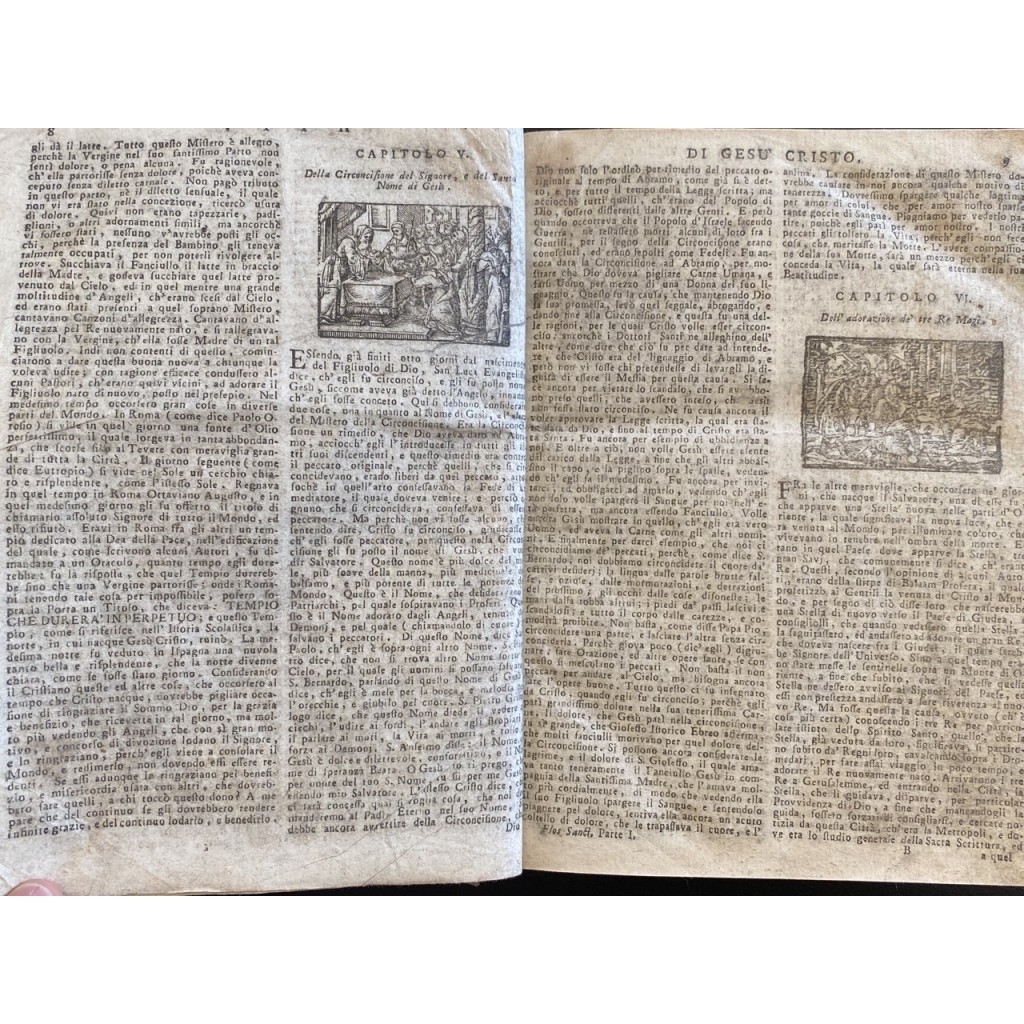 8 VITA
gli dà il latte. Tutto questo Mistero è allegro,
perchè la Vergine nel suo santissimo Parto non
sentì dolore, o pena alcuna. Fu ragionevole,
ch'ella partorisse senza dolore, poichè aveva con-
ceputo senza diletto carnale. Non pagò tributo
in questo parto, nè il diletto sensuale, il quale
non vi era stato nella concezione, ricercò usura
di dolore. Quivi non erano tapezzarie, padi-
glioni, o altri adornamenti simili, ma ancorchè
vi fossero stati, nessuno v'avrebbe posti gli oc-
chi, perchè la presenza del Bambino gli teneva
talmente occupati, per non poterli rivolgere al-
trove. Succhiava il Fanciullo il latte in braccio
della Madre, e godeva succhiare quel latte pro-
venuto dal Cielo, ed in quel mentre una grande
moltitudine d'Angeli, ch'erano scesi dal Cielo,
ed erano stati presenti a quel soprano Mistero,
cantavano Canzoni d'allegrezza. Cantavano d'al-
legrezza pel Re nuovamente nato, e si rallegrava-
no con la Vergine, ch'ella fosse Madre di un tal
Figliuolo. Indi non contenti di questo, comin-
ciarono a dare questa buona nuova a chiunque la
voleva udire; con ragione efficace condussero al-
cuni Pastori, ch'erano quivi vicini, ad adorare il
Figliuolo nato di nuovo, posto nel presepio. Nel
medesimo tempo occorsero gran cose in diverse
parti del Mondo. In Roma (come dice Paolo O-
rosio) si vide in quel giorno una fonte d'Olio
perfettissimo, il quale sorgeva in tanta abbondan-
za, che scorse fino al Tevere con meraviglia grande
di tutta la Città. Il giorno seguente (come
dice Eutropio) si vide nel Sole un cerchio chia-
ro e risplendente, come l'istesso Sole. Regnava
in quel tempo in Roma Ottaviano Augusto, e in
quel medesimo giorno gli fu offerto il titolo di
chiamarlo assoluto Signore di tutto il Mondo, ed
esso rifiutò. Eravi in Roma fra gli altri un tem-
pio dedicato alla Dea della Pace, nell'edificazione
del quale, come scrivono alcuni Autori, fu di-
mandato a un Oracolo, quanto tempo egli dure-
rebbe: fu la risposta, che quel Tempio durereb-
be fino che una Vergine partorisse: onde i Roma-
ni tenendo tale cosa per impossibile, posero so-
pra la Porta un Titolo, che diceva: TEMPIO
CHE DURERA' IN PERPETUO; e questo Tem-
pio, come si riferisce nell'Istoria Scolastica, la
notte, in cui nacque Gesù Cristo, ruinò. La me-
desima notte fu veduto in Ispagna una nuvola
tanto bella e risplendente, che la notte divenne
chiara, come se fosse stato giorno. Considerando
il Cristiano queste ed altre cose, che occorsero al
tempo che Cristo nacque, dovrebbe pigliare occa-
sione di ringraziare il Sommo Dio, per la grazia
e bene, che ricevette in tal giorno, ma mol-
to più vedendo gli Angeli, che con sì gran mo-
tivo, e concorso di divozione lodano il Signore,
e lo ringraziano, perch'egli viene a consolare il
Mondo, e redimerlo, non dovendo essi essere re-
denti. Se essi adunque la ringraziano pel benefi-
zio, e misericordia usata con altri, che dovreb-
bero fare quelli, a chi toccò questo dono? A me
pare che del continuo se gli dovrebbero tendere
infinite grazie, e del continuo lodarlo, e benedirlo.
CAPITOLO V.
Della Circoncisione del Signore, e del Santo
Nome di Gesù.
ESsendo già finiti otto giorni dal nascimento
del Figliuolo di Dio, San Luca Evangelista
dice, ch'egli fu circonciso, e gli fu posto nome
Gesù, siccome aveva già detto l'Angelo, innanzi
ch'egli fosse conceto. Qui si debbono considerare
due cose, una in quanto al Nome di Gesù, e l'altra
del Mistero della Circoncisione. Era la Circonci-
sione un rimedio, che Dio aveva dato ad Abra-
mo, acciocch'egli l'introducesse in tutti gli al-
tri suoi discendenti, e questo rimedio era contro
il peccato originale, perchè quelli, che si cir-
concidevano, erano liberi da quel peccato, atte-
sochè in quell'atto confessavano la Fede di un
mediatore, il quale doveva venire: e perciò o-
gnuno, che si circoncideva, confessava di essere
peccatore. Ma perchè non vi fosse alcuno, che
ch'egli fosse peccatore, per questo nella Circon-
cisione gli fu posto il nome di Gesù, che vuol
dir Salvatore. Questo nome è più dolce del me-
le, più soave della manna, più medicinale
di tutti gli unguenti, e più forte di tutte le potenze del
Mondo. Questo è il Nome, che desideravano i
Patriarchi, pel quale sospiravano i Profeti. Que-
sto è il Nome adorato dagli Angeli, temuto dai
Demonj, e pel quale (chiamandolo di cuore) si
salvano i peccatori. Di questo Nome, dice San
Paolo, ch'egli è sopra ogni altro Nome. S. Pie-
tro dice, che non si trova altro Nome sotto il
Cielo, per il quale gli uomini si possano salvare.
S. Bernardo, parlando di questo Nome di Gesù
dice, ch'egli è mele per la bocca, e melodia per
l'orecchie, e giubilo pel cuore. S. Pietro Griso-
logo dice, che questo Nome diede il vedere ai
ciechi, l'udire ai sordi, l'andare agli stroppiati,
il parlare ai muti, la Vita ai morti, e tolse la
forza ai Demonj. S. Anselmo disse: il Nome di
Gesù è dolce e dilettevole, confortante, e No-
me di speranza Beata. O Gesù, io ti prego,
per onore del tuo Nome, tu sii per me Gesù,
essendo mio Salvatore. L'istesso Cristo dice, che
ci sarà concessa qual si voglia cosa, che noi di-
manderemo al Padre Eterno nel suo Nome. Si
debbe ancora avvertire della Circoncisione, che
Dio
DI GESU' CRISTO. 9
Dio non solo l'ordinò per rimedio del peccato o-
riginale al tempo di Abramo, come già s'è det-
to, e per tutto il tempo della Legge scritta; ma
acciocchè tutti quelli, ch'erano del Popolo di
Dio, fossero differenti dalle altre Genti. E però
quando occorreva che il Popolo d'Israele facendo
Guerra, se restassero morti alcuni di loro fra i
Gentili, per il segno della Circoncisione erano
conosciuti, ed erano sepolti come Fedeli. Fu an-
cora data la Circoncisione ad Abramo, per mo-
strare che Dio doveva pigliare Carne Umana, e
farsi Uomo per mezzo di una Donna del suo li-
gnaggio. Questo fu la causa, che mantenendo Dio
la sua promessa, gli piacque legale, abrogando, e dan-
do fine alla Circoncisione, e questa fu una del-
le ragioni, per le quali Cristo volle esser circon-
ciso: ancorchè i Dottori Santi ne alleghino dell'
altre, come dire che ciò fu per dare ad intende-
re, che Cristo era del lignaggio di Abramo, e
però non vi fosse chi pretendesse di levargli la di-
gnità di essere il Messia per questa causa. Si fa-
ce ancora per vietare lo scandalo, che si avrebbe
preso quelli, che avessero inteso, ch'egli
non fosse stato circonciso. Ne fu causa ancora il
voler approvare la Legge scritta, la qual era sta-
ta data da Dio, e sino al tempo di Cristo era sta-
ta Santa. Fu ancora per esempio di ubbidienza a
noi. E oltre a ciò, non volle Gesù essere esente
di quel carico della Legge, a fine che gli altri abbas-
sino il capo, e la piglino sopra le spalle, veden-
do ch'egli fa il medesimo. Fu ancora per invi-
tarci, ed obbligarci ad amarlo, vedendo ch'egli
non solo volle spargere il Sangue per noi nell'e-
tà perfetta, ma ancora essendo Fanciullo. Volle
ancora Gesù mostrare in questo, ch'egli era vero
Uomo, ed aveva la Carne come gli altri uomi-
ni. E finalmente per darci esempio, che noi ci
circoncidiamo de' peccati, perchè, come dice S.
Bernardo, noi dobbiamo circoncidere il cuore da'
cattivi desiderj; la lingua dalle parole brutte fal-
se, oziose, dalle mormorazioni, e detrazioni
de' prossimi; gli occhi dalle cose disoneste, le
mani dalla robba altrui; i piedi da' passi lascivi e
scandalosi, e tutto il corpo dalle carezze, e co-
modità proibite. Non basta, come disse Papa Pio,
circoncidere una parte, e lasciare l'altra senza cir-
conciderla. Perchè giova poco (dic'egli) digiuna-
re, fare Orazione, ed altre opere sante, se con
questo si mescolino i peccati. Non giova il non
dire male, se per andare al Cielo, ma bisogna ancora
fare l'opere buone. Tutto questo ci fu insegnato
da Cristo, quando egli fu circonciso, ancorchè
patì grandissimo dolore nella sua tenerissima Car-
ne. Il dolore, che Gesù patì nella circoncisione,
era tanto, che Giosesso Istorico Ebreo afferma,
che alcuni Fanciulli morivano per quel dolore del-
la Circoncisione. Si possono ancora considerate le
lagrime, e il dolore di S. Gioseffo, il quale ama-
va tanto teneramente il Fanciullo Gesù in com-
pagnia della Santissima Madre, che l'amava mol-
to più cordialmente, di modo che vedendo ella
il suo Figliuolo spargere il Sangue, e sentendo un
tal dolore, sentiva ella ancora un acuto
coltello di dolore, che le trapassava il cuore, e l'
anima. La considerazione di questo Mistero do-
vrebbe causare in noi ancora qualche motivo di
tenerezza, Dovressimo spargere qualche lagrima
per amor di colui, che per amor nostro sparse
tante goccie di Sangue. Piagniamo per vederlo pa-
tire, poichè egli patì per amor nostro. I nostri
peccati gli tolsero la Vita, ancorch'egli non fece
cosa, che meritasse la Morte. L'avere compassio-
ne della sua Morte, sarà un mezzo perch'egli ci
conceda la Vita, la quale sarà eterna nella sua
Beatitudine.
CAPITOLO VI.
Dell'adorazione de' tre Re Magi.
FRa le altre meraviglie, che occorsero ne' gior-
ni, che nacque il Salvatore, una si fu
che apparve una Stella nuova nelle parti d'O-
riente, la quale significava la nuova luce, che era
venuta nel Mondo, per illuminare coloro, che
vivevano in tenebre nell'ombra della morte. E-
rano in quel Paese dove apparve la Stella, tre
gran Savj, che comunemente si dice che fossero
Re. Questi, secondo l'opinione di alcuni Autori,
erano della stirpe di Balaam Profeta, il quale
profetizzò ai Gentili la venuta di Cristo al Mon-
do, e per segno di ciò disse loro che nascerebbe
una Stella di nuovo verso il Paese di Giudea, e
gli consigliò, che quando vedessero quella Stella,
la seguitassero, ed andassero ad adorare un gran Re, che
doveva nascere fra i Giudei, il quale sareb-
be Signore dell'Universo. Sino a quel tempo e-
rano state messe le sentinelle sopra un Monte di O-
riente, a fine che subito, che si vedesse questa
Stella ne dessero avviso ai Signori del Paese, e
ad essi con prestezza andassero a visitare il nuo-
vo Re. Ma fosse questa la causa, ovvero (ch'è
cosa più certa) conoscendo i tre Re per partico-
lare istinto dello Spirito Santo, quello, che la
Stella, già veduta da loro, significava, si partirо-
no subito da' Regni loro, cavalcando sopra i Dro-
medarj, a fine di fare più tosto viaggio, ed an-
dare ad adorare il Re nuovamente nato. Arrivarono i tre
Re a Gerosolemme, ed entrando nella Città, la
Stella, che li guidava, disparve, per particolar
Provvidenza di Dio, a fine che mancandogli la
guida, fossero forzati di consigliarsi, e cercare no-
tizia da questa Città, ch'era la Metropoli, e do-
ve era lo studio generale della Sacra Scrittura, ed
Flos Sanct. Parte I. B a quel